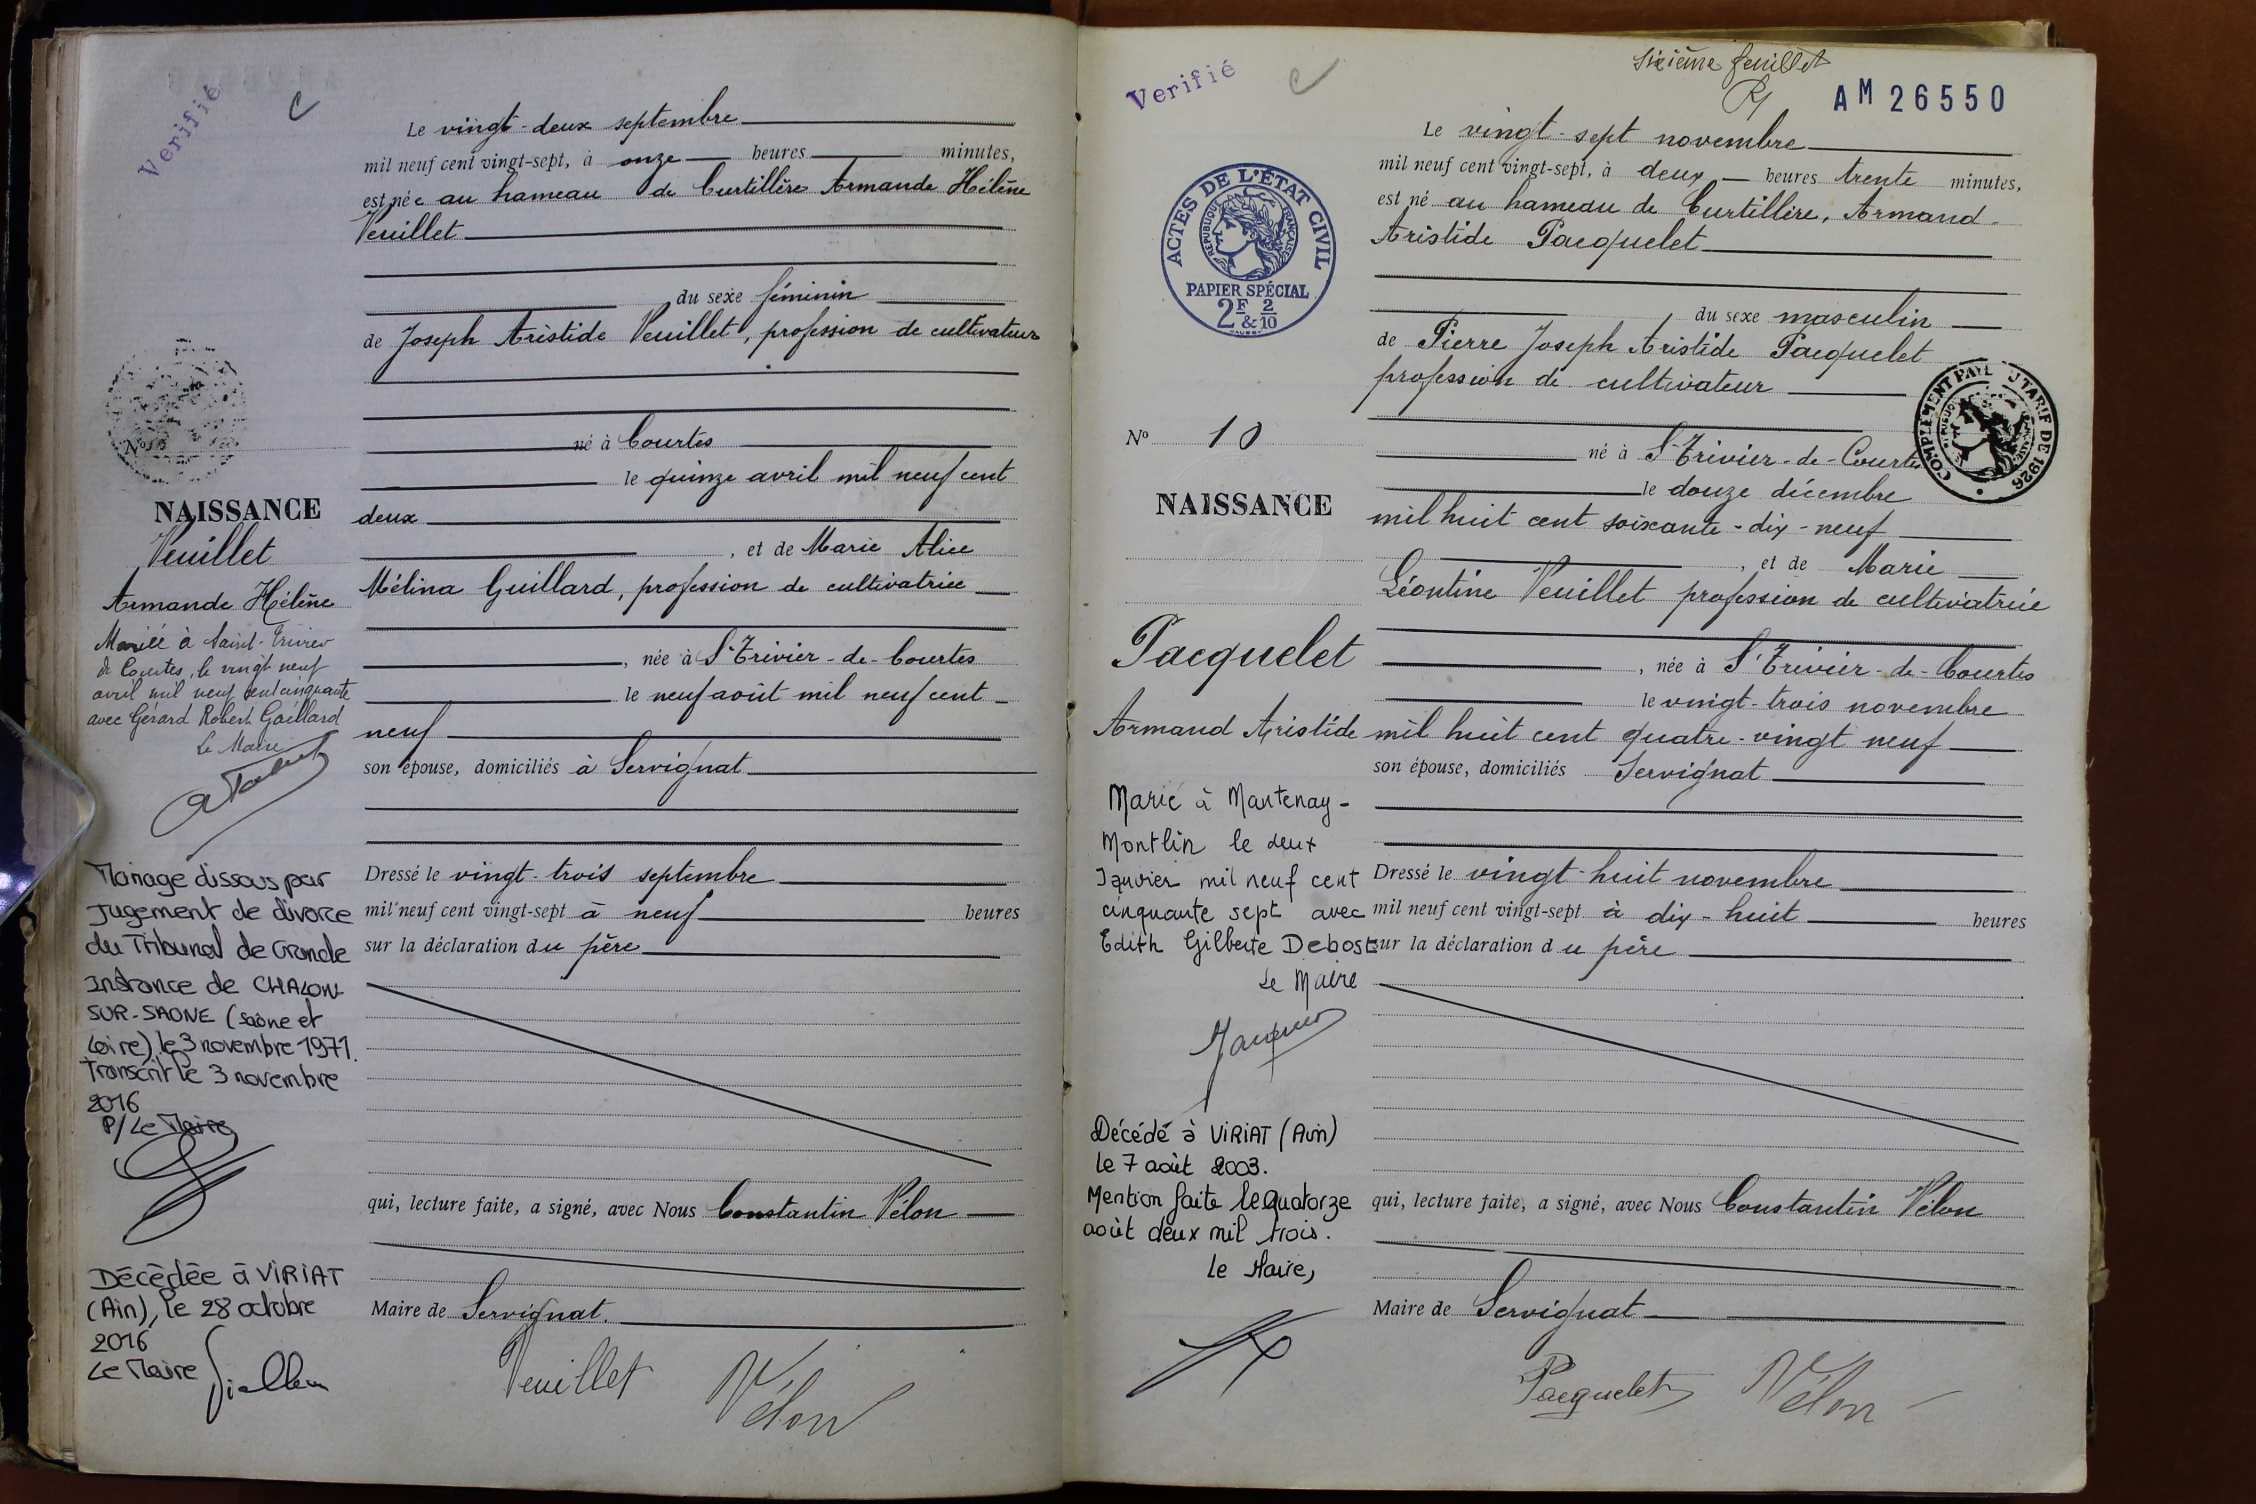 Verifié
Le vingt-deux septembre
mil neuf cent vingt-sept, à onze heures minutes,
est née au hameau de Curtillère Armande Hélène
Veuillet
du sexe féminin
de Joseph Aristide Veuillet, profession de cultivateur
né à Courtes
le quinze avril mil neuf cent
deux
, et de Marie Alice
Mélina Guillard, profession de cultivatrice
, née à St-Trivier-de-Courtes
le neuf août mil neuf cent
neuf
son épouse, domiciliés à Servignat
Dressé le vingt-trois septembre
mil neuf cent vingt-sept à neuf heures
sur la déclaration du père
qui, lecture faite, a signé, avec Nous Constantin Vélon
Maire de Servignat.
Veuillet Vélon
No
NAISSANCE
Veuillet
Armande Hélène
Mariée à Saint-Trivier
de Courtes, le vingt neuf
avril mil neuf cent cinquante
avec Gérard Robert Gaillard
Le Maire
Mariage dissous par
jugement de divorce
du Tribunal de Grande
Instance de CHALON
SUR-SAONE (Saône et
Loire) le 3 novembre 1971.
Transcrit le 3 novembre
2016
P/ Le Maire
Décédée à VIRIAT
(Ain), le 28 octobre
2016
Le Maire
Verifié
sixième feuillet
AM 26550
Le vingt-sept novembre
mil neuf cent vingt-sept, à deux heures trente minutes,
est né au hameau de Curtillère, Armand
Aristide Pacquelet
du sexe masculin
de Pierre Joseph Aristide Pacquelet
profession de cultivateur
né à St-Trivier-de-Courtes
le douze décembre
mil huit cent soixante-dix-neuf
, et de Marie
Léontine Veuillet profession de cultivatrice
, née à St-Trivier-de-Courtes
le vingt-trois novembre
mil huit cent quatre-vingt neuf
son épouse, domiciliés Servignat
Dressé le vingt-huit novembre
mil neuf cent vingt-sept à dix-huit heures
sur la déclaration du père
qui, lecture faite, a signé, avec Nous Constantin Vélon
Maire de Servignat
Pacquelet Vélon
ACTES DE L'ÉTAT CIVIL
RÉPUBLIQUE FRANÇAISE
PAPIER SPÉCIAL
2F & 2/10
COMPLÉMENT PAYÉ TARIF DE 1926
No 10
NAISSANCE
Pacquelet
Armand Aristide
Marié à Mantenay-
Montlin le deux
Janvier mil neuf cent
cinquante sept avec
Edith Gilberte Debost
Le Maire
Décédé à VIRIAT (Ain)
le 7 août 2003.
Mention faite le quatorze
août deux mil trois.
Le Maire,